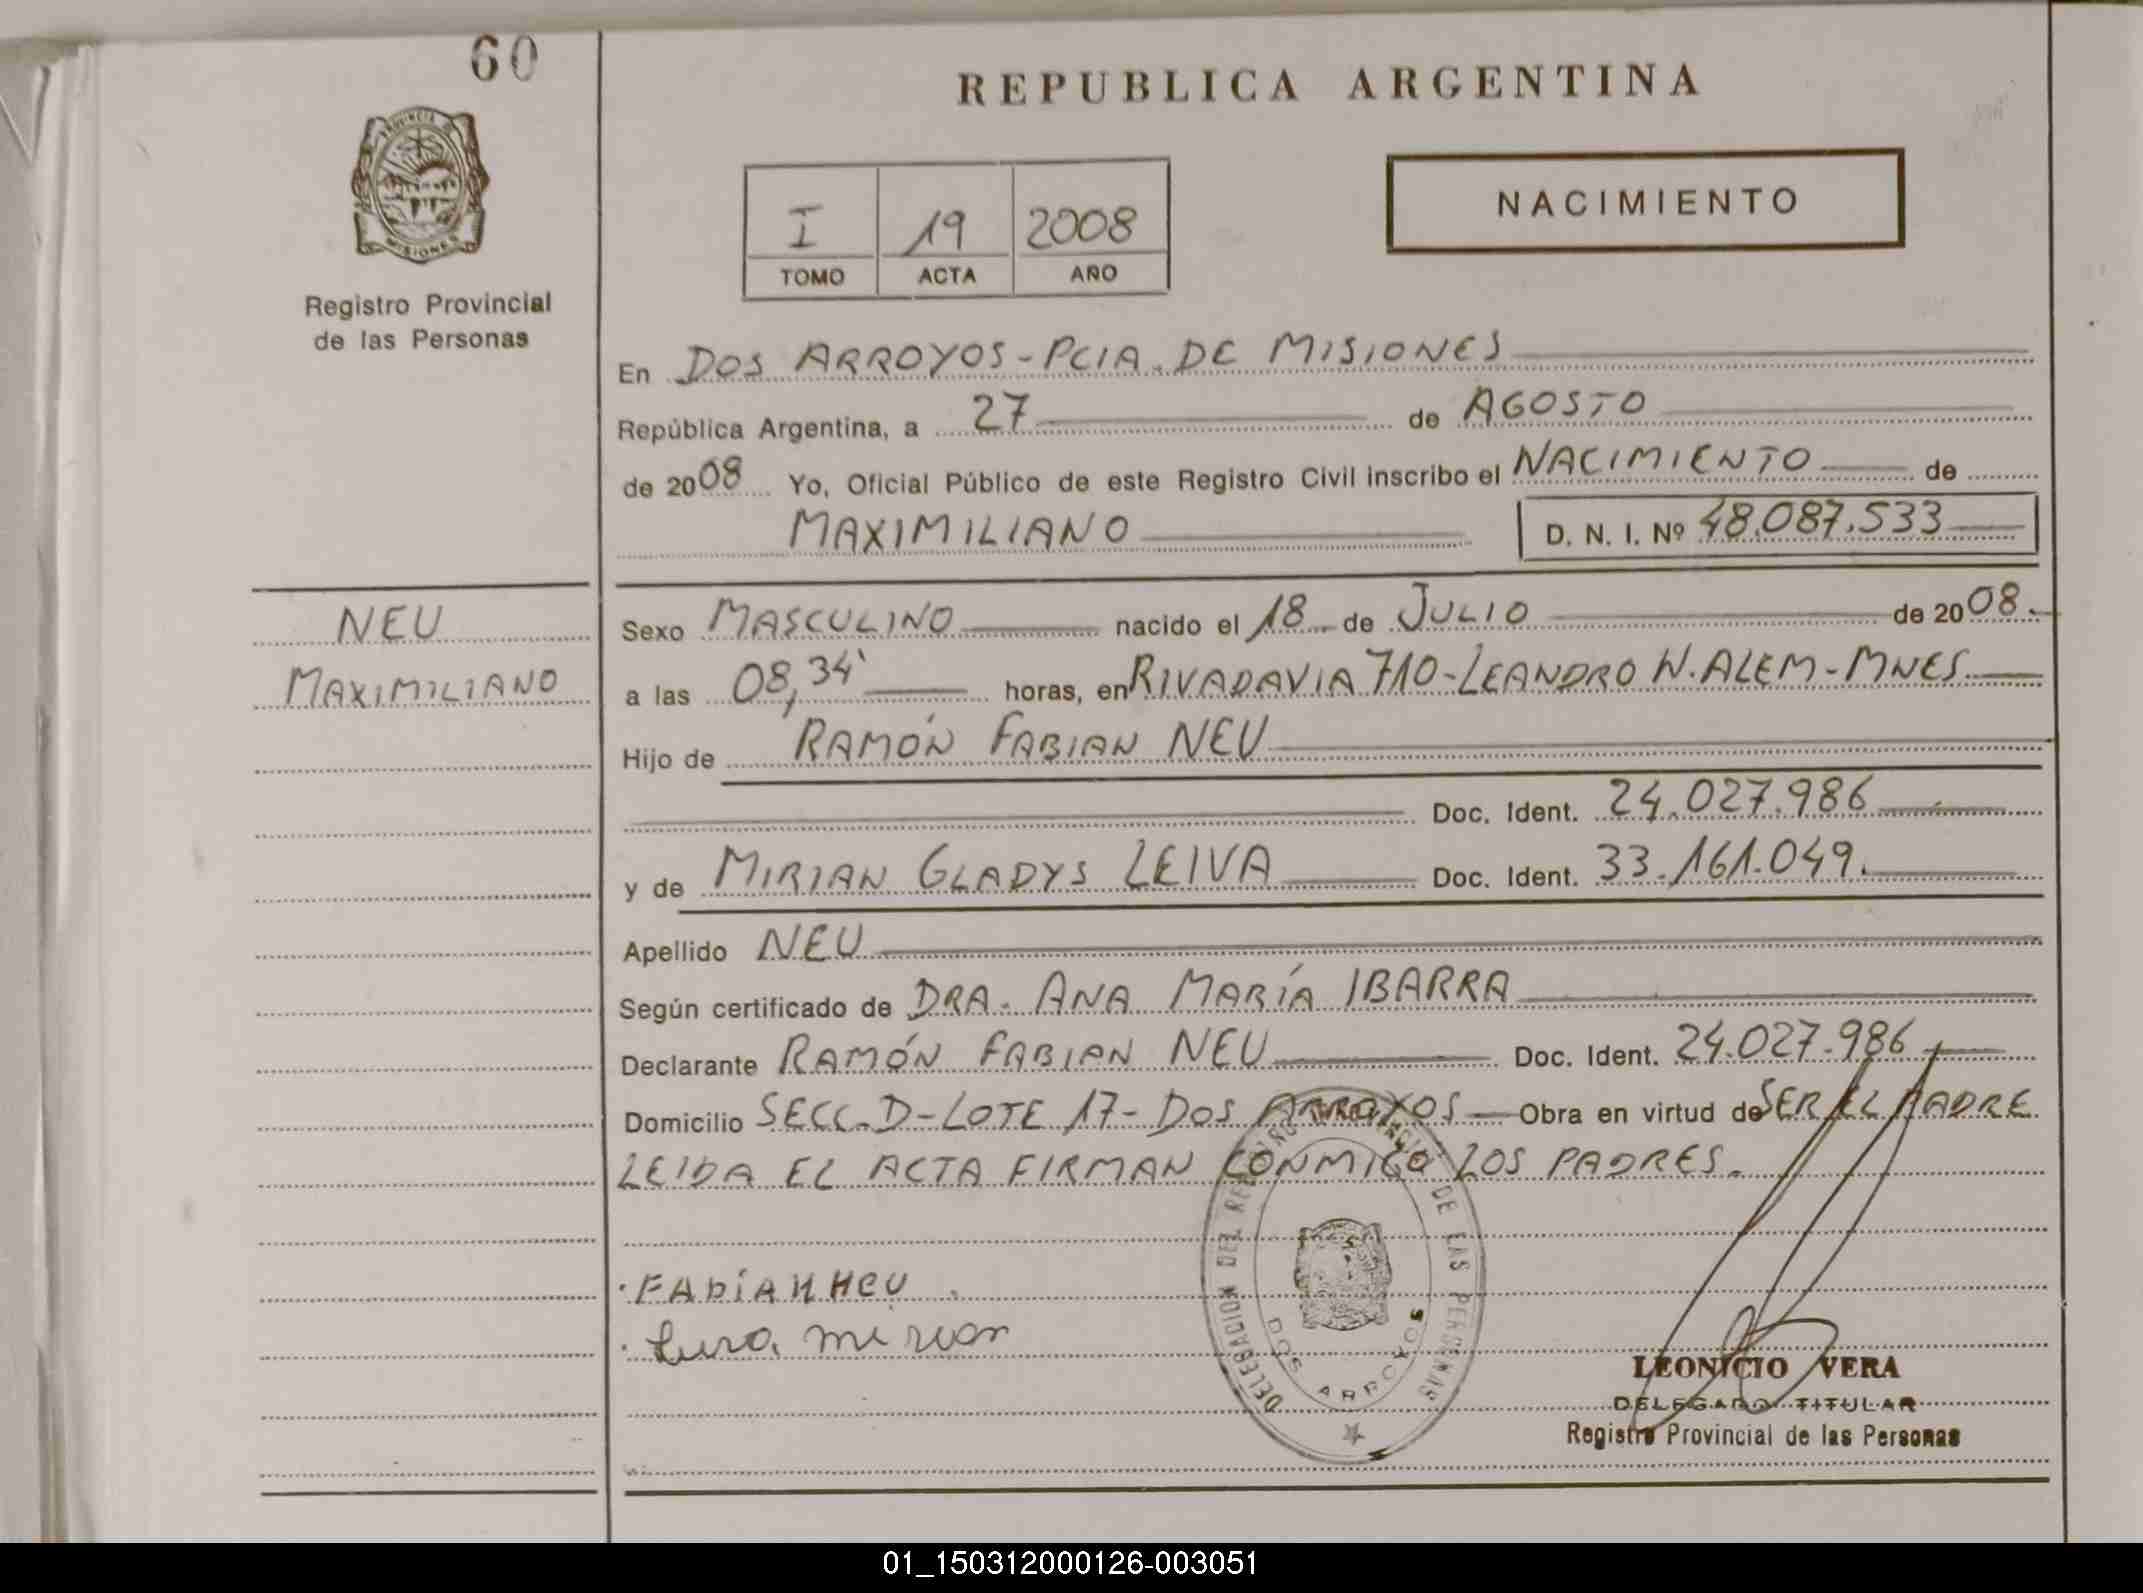 60
REPUBLICA ARGENTINA
PROVINCIA
MISIONES
Registro Provincial
de las Personas
I 19 2008
TOMO ACTA AÑO
NACIMIENTO
En DOS ARROYOS - PCIA. DE MISIONES
República Argentina, a 27 de AGOSTO
de 2008 Yo, Oficial Público de este Registro Civil inscribo el NACIMIENTO de
MAXIMILIANO D. N. I. Nº 48.087.533
NEU
MAXIMILIANO
Sexo MASCULINO nacido el 18 de JULIO de 2008.
a las 08,34' horas, en RIVADAVIA 710-LEANDRO N. ALEM-MNES.
Hijo de RAMÓN FABIAN NEU
Doc. Ident. 24.027.986
y de MIRIAN GLADYS LEIVA Doc. Ident. 33.161.049.
Apellido NEU
Según certificado de DRA. ANA MARÍA IBARRA
Declarante RAMÓN FABIAN NEU Doc. Ident. 24.027.986
Domicilio SECC. D-LOTE 17- DOS ARROYOS Obra en virtud de SER EL PADRE
LEIDA EL ACTA FIRMAN CONMIGO LOS PADRES.
FABÍAN NEU
mirian
DELEGACION DEL REGISTRO PROVINCIAL DE LAS PERSONAS
DOS ARROYOS
LEONICIO VERA
DELEGADO TITULAR
Registro Provincial de las Personas
01_150312000126-003051